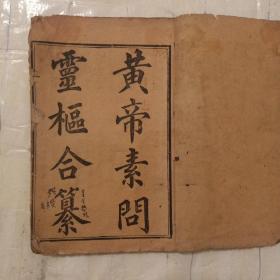 黄帝素問
靈樞合纂